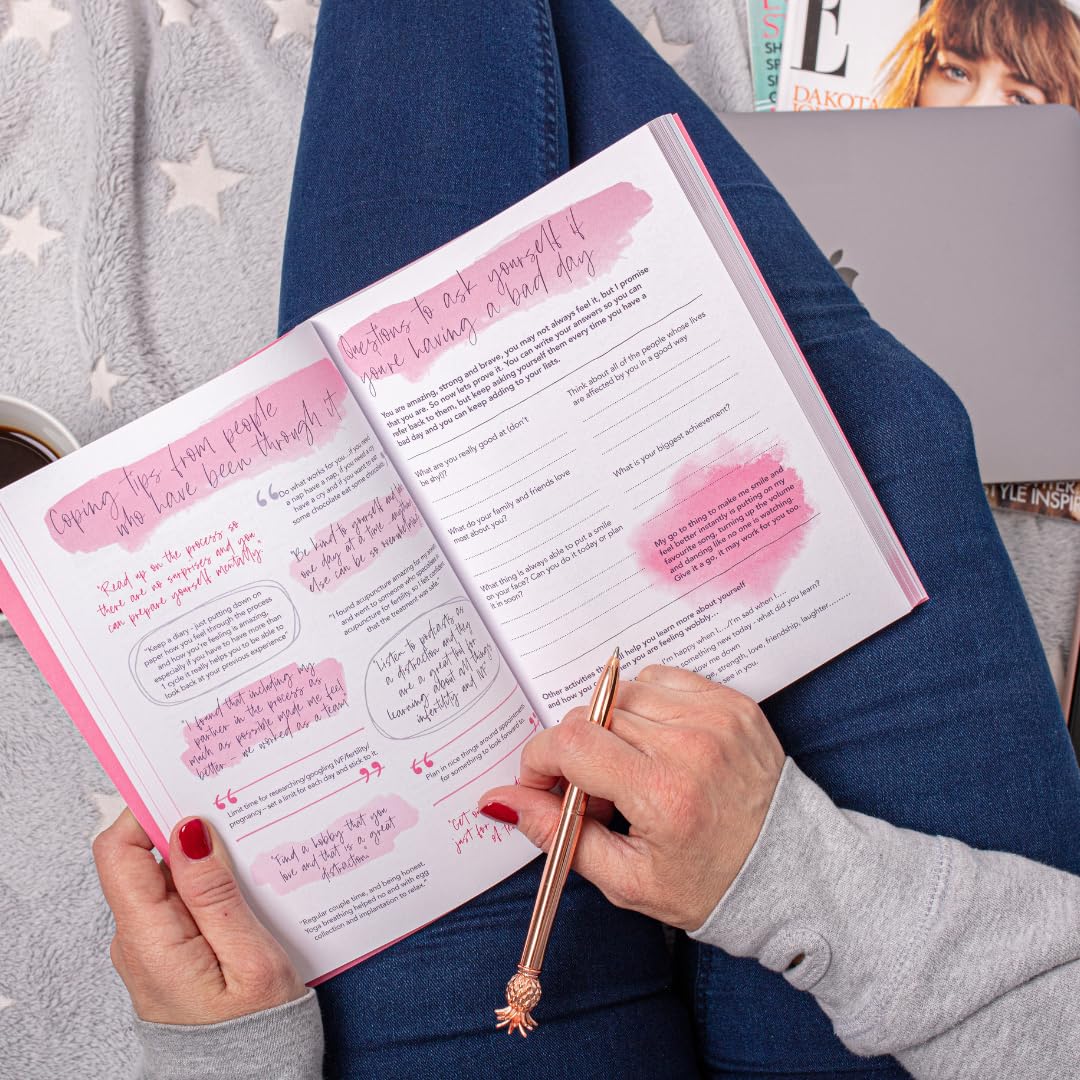 Coping tips from people
who have been through it
"Read up on the process so
there are no surprises and you
can prepare yourself mentally."
"Keep a diary - just putting down on
paper how you feel through the process
and how you're feeling is amazing,
especially if you have to have more than
1 cycle it really helps you to be able to
look back at your previous experience"
"I found that including my
partner in the process as
much as possible made me feel
better - we worked as a team"
Limit time for researching/googling IVF/fertility/
pregnancy – set a limit for each day and stick to it.
"Find a hobby that you
love and that is a great
distraction."
"Regular couple time, and being honest.
Yoga breathing helped no end with egg
collection and implantation to relax."
Do what works for you...if you need
a nap have a nap, if you need a cry
have a cry and if you want to eat
some chocolate eat some chocolate
"Be kind to yourself and
one day at a time
else can be so
"I found acupuncture amazing for my
and went to someone who
acupuncture for fertility, so I felt confident
that the treatment was safe"
"Listen to podcasts as
a distraction and they
are a great tool for
learning about all things
infertility and IVF"
Plan in nice things around appointments
for something to look forward to
"Get
just for
of
Questions to ask yourself if
you're having a bad day
You are amazing, strong and brave, you may not always feel it, but I promise
that you are. So now lets prove it. You can write your answers so you can
refer back to them, but keep asking yourself them every time you have a
bad day and you can keep adding to your lists.
What are you really good at (don't
be shy)?
What do your family and friends love
most about you?
What thing is always able to put a smile
on your face? Can you do it today or plan
it in soon?
Think about all of the people whose lives
are affected by you in a good way
What is your biggest achievement?
My go to thing to make me smile and
feel better instantly is putting on my
favourite song, turning up the volume
and dancing like no one is watching.
Give it a go, it may work for you too.
Other activities that help you learn more about yourself
and how you when you are feeling wobbly.
I'm happy when I.....I'm sad when I......
something new today - what did you learn?
low me down
strength, love, friendship, laughter
see in you.
E
DAKOTA
SH
STYLE INSPI